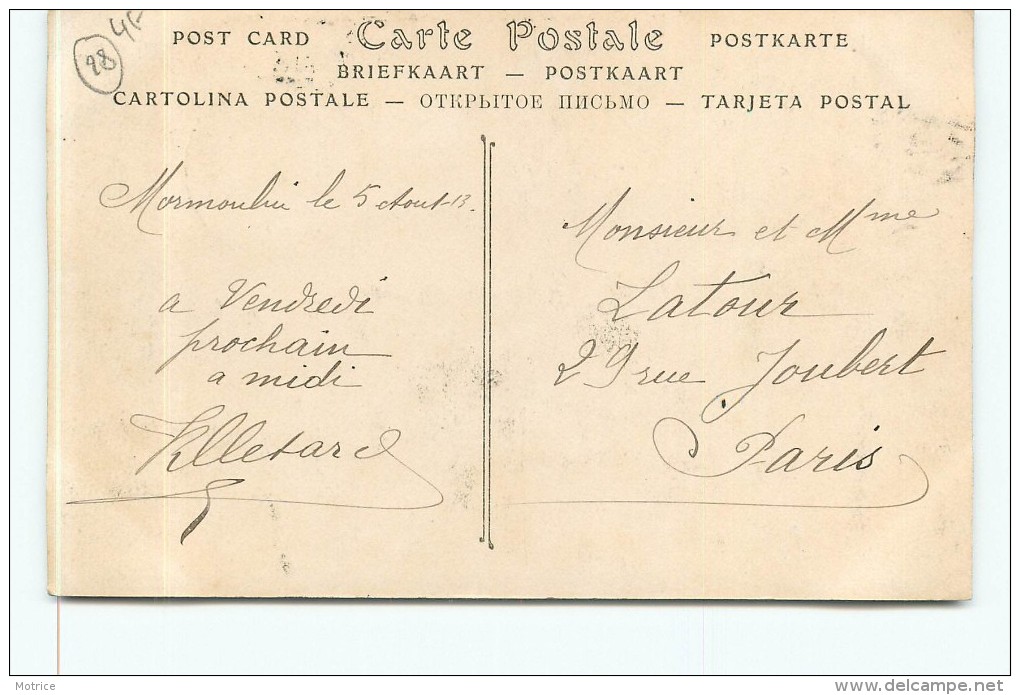 28
POST CARD Carte Postale POSTKARTE
BRIEFKAART — POSTKAART
CARTOLINA POSTALE — ОТКРЫТОЕ ПИСЬМО — TARJETA POSTAL
Mormoulin le 5 Aout 13.
a Vendredi
prochain
a midi
Monsieur et Mme
Latour
29 rue Joubert
Paris
Motrice
www.delcampe.net